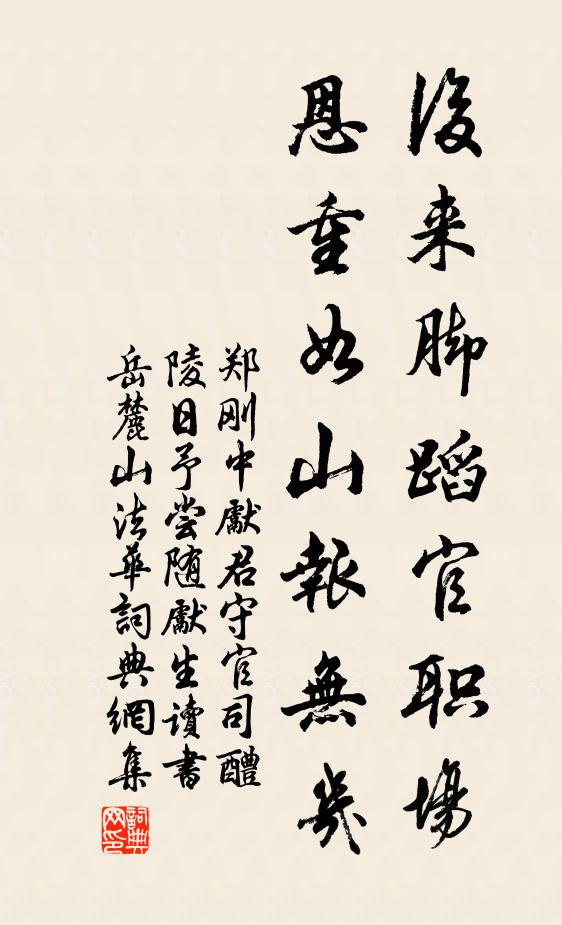 後来脚蹈官职場
恩重如山報無幾
郑刚中獻君守官司醴
陵日予尝随獻生讀書
岳麓山法華詞典網集
詞典网印